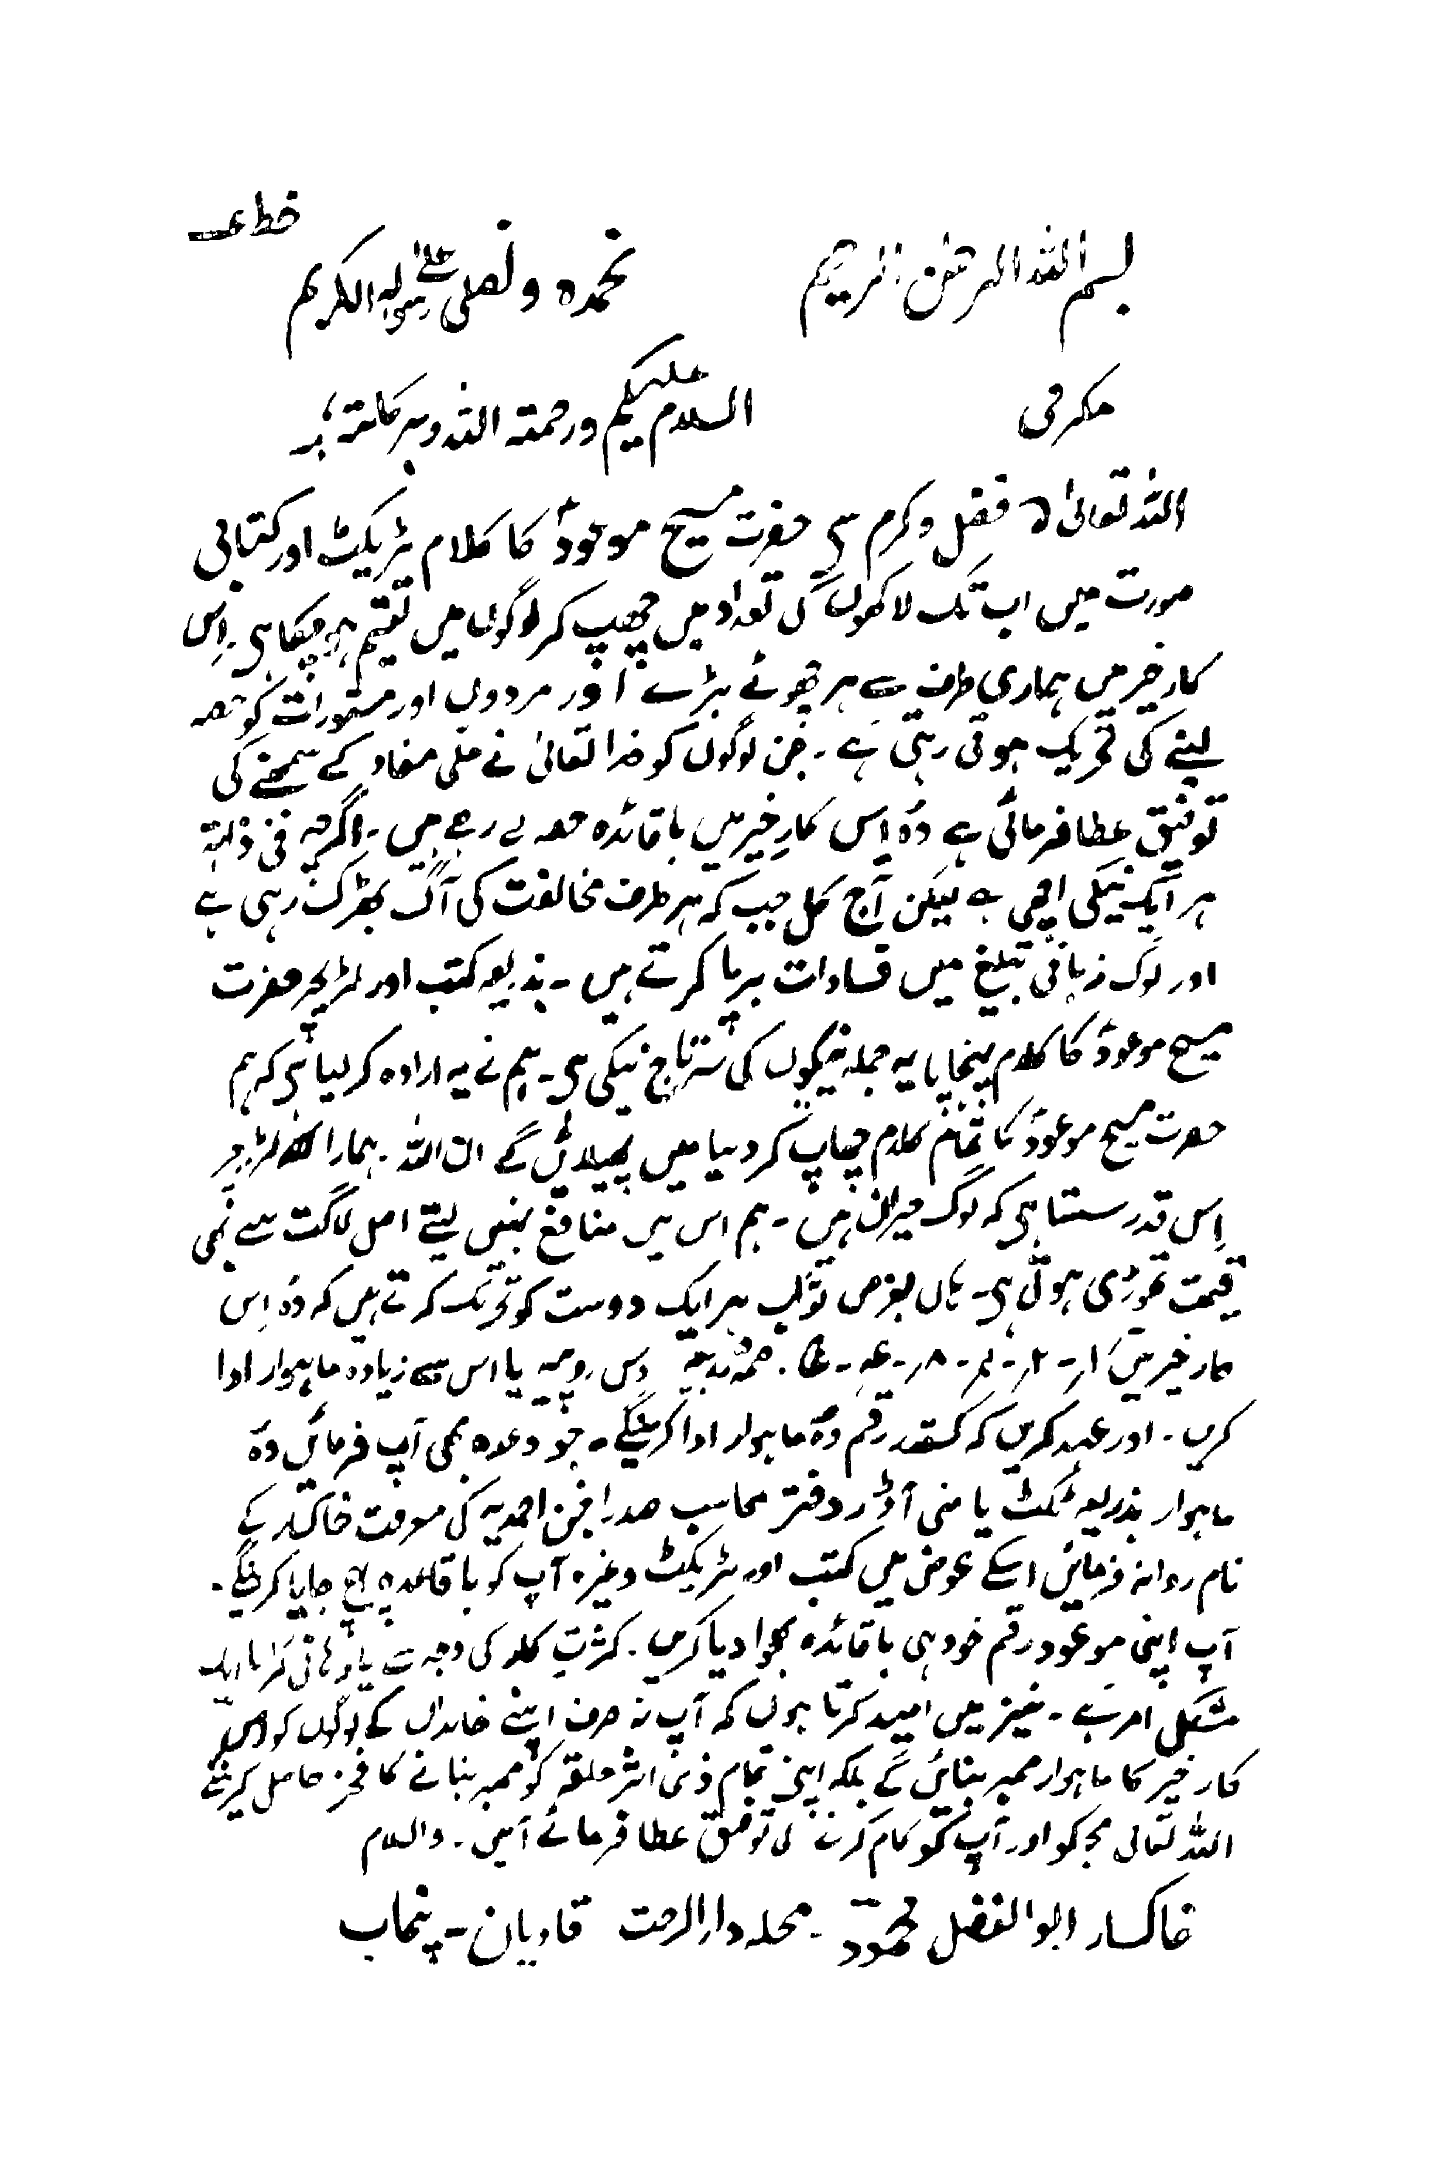 خط
بسم اللہ الرحمٰن الرحیم نحمدہ و نصلی علےٰ رسولہ الکریم
مکرمی السلام علیکم ورحمتہ اللہ وبرکاتہ؛
اللہ تعالیٰ کے فضل و کرم سے حضرت مسیح موعودؑ کا کلام ٹریکٹ اور کتابی
صورت میں اب تک لاکھوں کی تعداد میں چھپ کر لوگوں میں تقسیم ہو چکا ہی۔ اِس
کارِ خیر میں ہماری طرف سے ہر چھوٹے بڑے اور مردوں اور مستورات کو حصہ
لینے کی تحریک ہوتی رہتی ہے۔ جن لوگوں کو خدا تعالیٰ نے ملی مفاد کے سمجھنے کی
توفیق عطا فرمائی ہے وُہ اِس کارِ خیر میں باقائدہ حصہ لے رہے ہیں۔ اگرچہ فی ذاتہٖ
ہر ایک نیکی اچھی ہے لیکن آج کل جب کہ ہر طرف مخالفت کی آگ بھڑک رہی ہے
اور لوگ زبانی تبلیغ میں فسادات برپا کرتے ہیں۔ بذریعہ کتب اور لٹریچر حضرت
مسیح موعودؑ کا کلام پہنچانا یہ جملہ نیکیوں کی سرتاج نیکی ہی۔ ہم نے یہ ارادہ کر لیا ہی کہ ہم
حضرت مسیح موعودؑ کا تمام کلام چھاپ کر دنیا میں پھیلائیں گے ان اللہ۔ ہمارا لٹریچر
اِس قدر سستا ہی کہ لوگ حیران ہیں۔ ہم اس میں منافع نہیں لیتے اصل لاگت سے بھی
قیمت تھوڑی ہوتی ہی۔ ہاں بغرض ثواب ہر ایک دوست کو تحریک کرتے ہیں کہ وُہ اِس
کار خیر میں ۱؍۔ ۲؍۔ ۴؍۔ ۸؍۔ دس روپیہ یا اس سے زیادہ ماہوار ادا
کریں۔ اور عہد کریں کہ کسقدر رقم وُہ ماہوار ادا کرینگے۔ جو وعدہ بھی آپ فرمائیں وُہ
ماہوار بذریعہ ٹکٹ یا منی آڈر دفتر محاسب صدر انجمن احمدیہ کی معرفت خاکسار کے
نام روانہ فرمائیں اسکے عوض میں کتب اور ٹریکٹ وغیرہ آپ کو باقاعدہ پہنچ جایا کرینگے۔
آپ اپنی موعود رقم خود ہی باقائدہ بھجوا دیا کریں۔ کثرتِ کار کی وجہ سے یاد دہانی کرانا ایک
مشکل امر ہے۔ نیز میں امید کرتا ہوں کہ آپ نہ صرف اپنے خاندان کے لوگوں کو اس
کار خیر کا ماہوار ممبر بنائیں گے بلکہ اپنے تمام ذی اثر حلقہ کو ممبر بنانے کا فخر حاصل کرینگے
اللہ تعالیٰ مجکو اور آپ کو کام کرنے کی توفیق عطا فرمائے آمین۔ والسلام
خاکسار ابوالفضل محمود۔ محلہ دارالرحمت قادیان۔ پنجاب